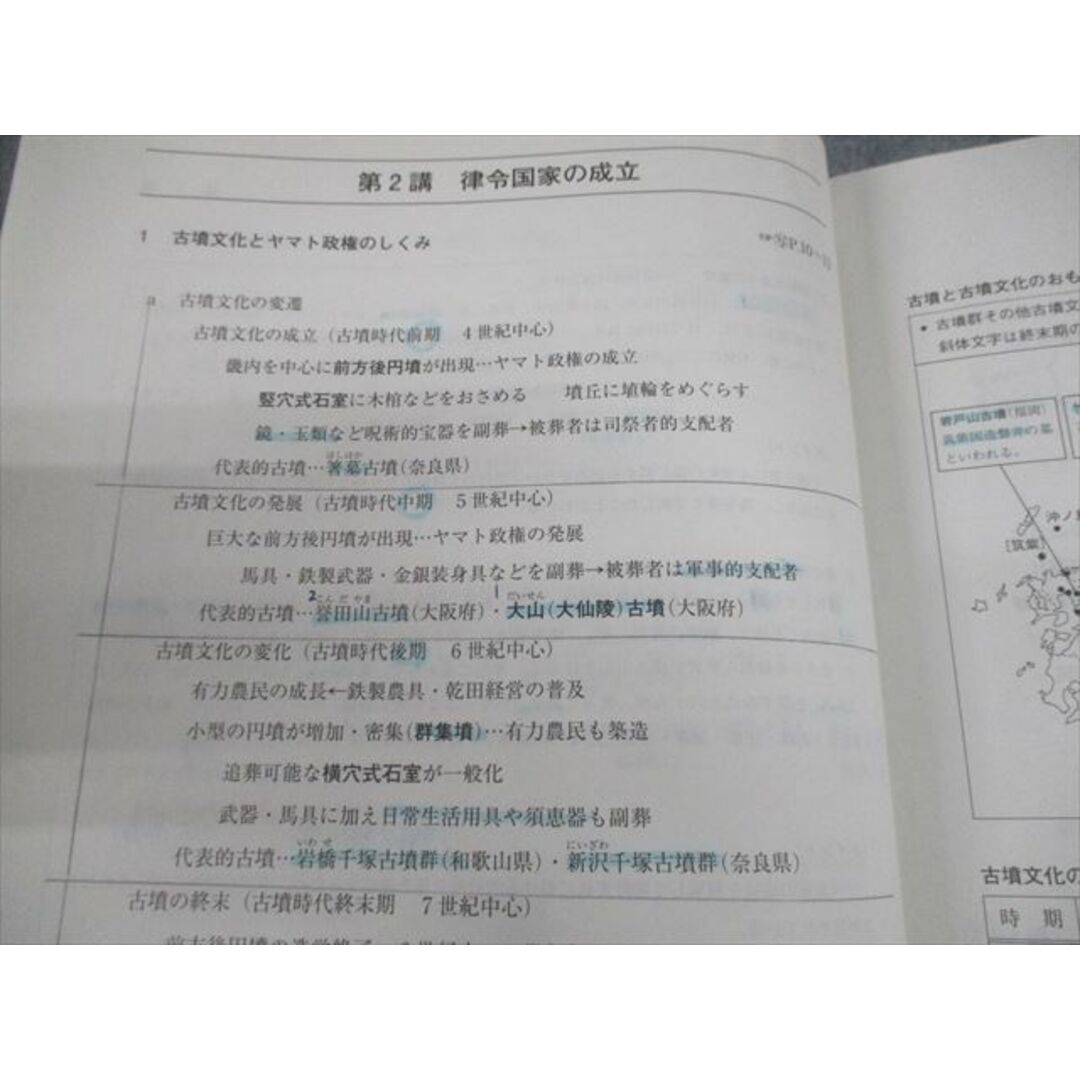 第2講 律令国家の成立
1 古墳文化とヤマト政権のしくみ
a 古墳文化の変遷
古墳文化の成立(古墳時代前期 4世紀中心)
畿内を中心に前方後円墳が出現…ヤマト政権の成立
竪穴式石室に木棺などをおさめる 墳丘に埴輪をめぐらす
鏡・玉類など呪術的宝器を副葬→被葬者は司祭者的支配者
はしはか
代表的古墳…箸墓古墳(奈良県)
古墳文化の発展(古墳時代中期 5世紀中心)
巨大な前方後円墳が出現…ヤマト政権の発展
馬具・鉄製武器・金銀装身具などを副葬→被葬者は軍事的支配者
2 こんだやま 1 だいせん
代表的古墳…誉田山古墳(大阪府)・大山(大仙陵)古墳(大阪府)
古墳文化の変化(古墳時代後期 6世紀中心)
有力農民の成長←鉄製農具・乾田経営の普及
小型の円墳が増加・密集(群集墳)…有力農民も築造
追葬可能な横穴式石室が一般化
武器・馬具に加え日常生活用具や須恵器も副葬
いわせ にいざわ
代表的古墳…岩橋千塚古墳群(和歌山県)・新沢千塚古墳群(奈良県)
古墳の終末(古墳時代終末期 7世紀中心)
古墳と古墳文化のおも
• 古墳群その他古墳文
斜体文字は終末期の
岩戸山古墳(福岡)
筑紫国造磐井の墓
といわれる。
沖ノ
[筑紫]
古墳文化の
時 期